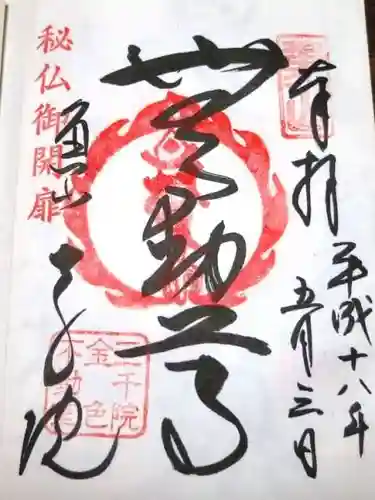 奉拝
平成十八年
五月三日
無動尊
秘仏御開扉
魚山
三千院
三千院
金色
不動